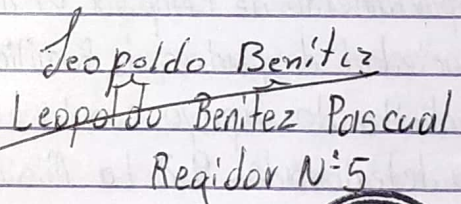 Leopoldo Benítez
Leopoldo Benitez Pascual
Regidor N:5